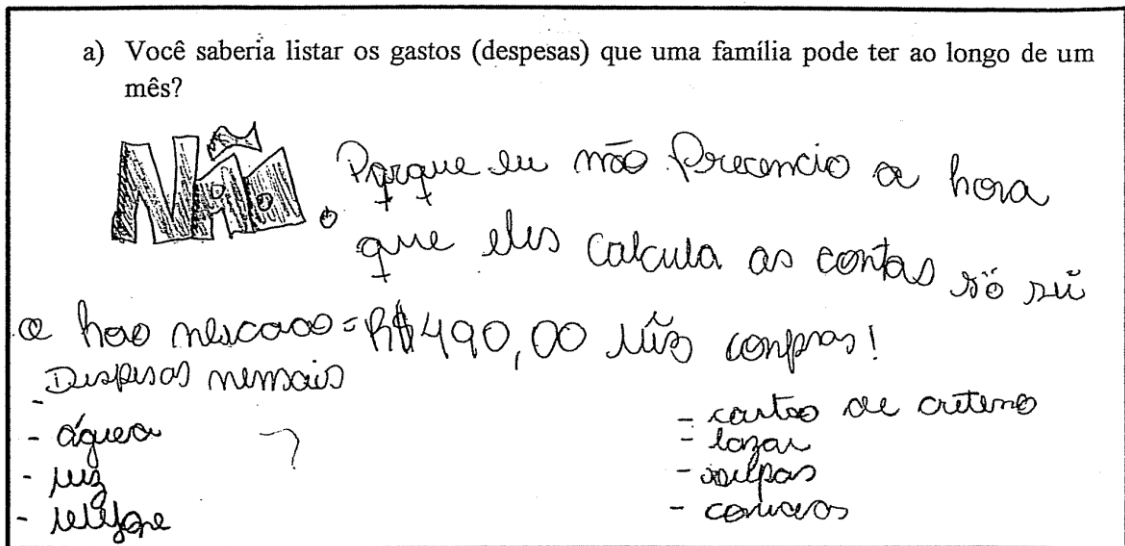 a) Você saberia listar os gastos (despesas) que uma família pode ter ao longo de um
mês?
NÃO. Porque eu não Precencio a hora
que eles calcula as contas só sei
a hora = R$490,00 mês compras!
Despesas mensais
- água ?
- luz
- telefone
- cartão de
- lazar
- roupas
-